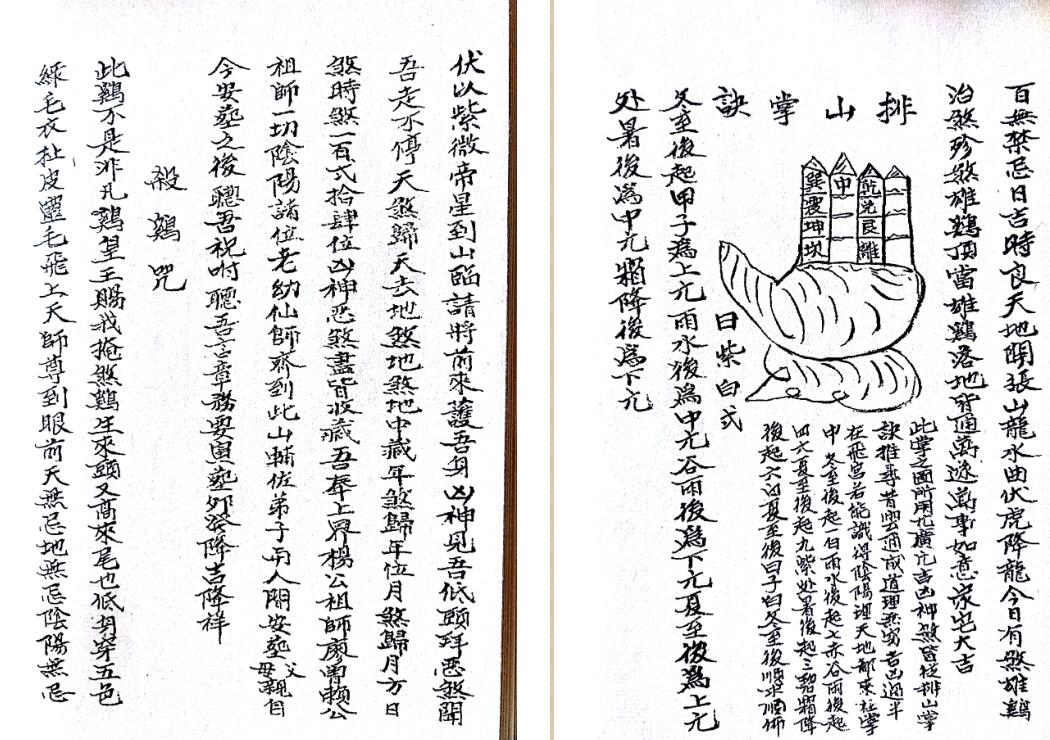 伏以紫微帝星到山臨請將前來護吾身凶神見吾低頭拜惡煞聞
吾走不停天煞歸天去地煞地中藏年煞歸年位月煞歸月方日
煞時煞一百弍拾肆位凶神惡煞盡皆收藏吾奉上界楊公祖師廖曾賴公
祖師一切陰陽諸位老幼仙師齊到此山輔佐弟子兩人開安塟父母親自
今安塟之後聽吾祝咐聽吾言章務要 塟外發降吉降祥
殺鷄咒
此鷄不是非凡鷄皇王賜我掩煞鷄生來頭又高來尾也低身穿五色
綠毛衣 皮 毛飛上天師尊到眼前天無忌地無忌陰陽無忌
百無禁忌日吉時良天地開張山龍水曲伏虎降龍今日有煞雄鷄
治煞殄煞雄鷄頂當雄鷄落地皆通萬遂萬事如意家宅大吉
排山掌訣
巽震坤坎
中
乾兌艮離
此掌之圖所用尤廣 吉凶神煞皆從排山掌
訣推尋昔 云通成道理無窮吉凶過半
在飛宮若能識得陰陽理天地都來在掌
中 冬至後起一白雨水後起七赤谷雨後起
四六夏至後起九紫处暑後起三碧霜降
後起六白夏至後 冬至後順求順佈
日紫白式
冬至後起甲子為上元雨水後為中元谷雨後為下元夏至後為上元
处暑後為中元霜降後為下元